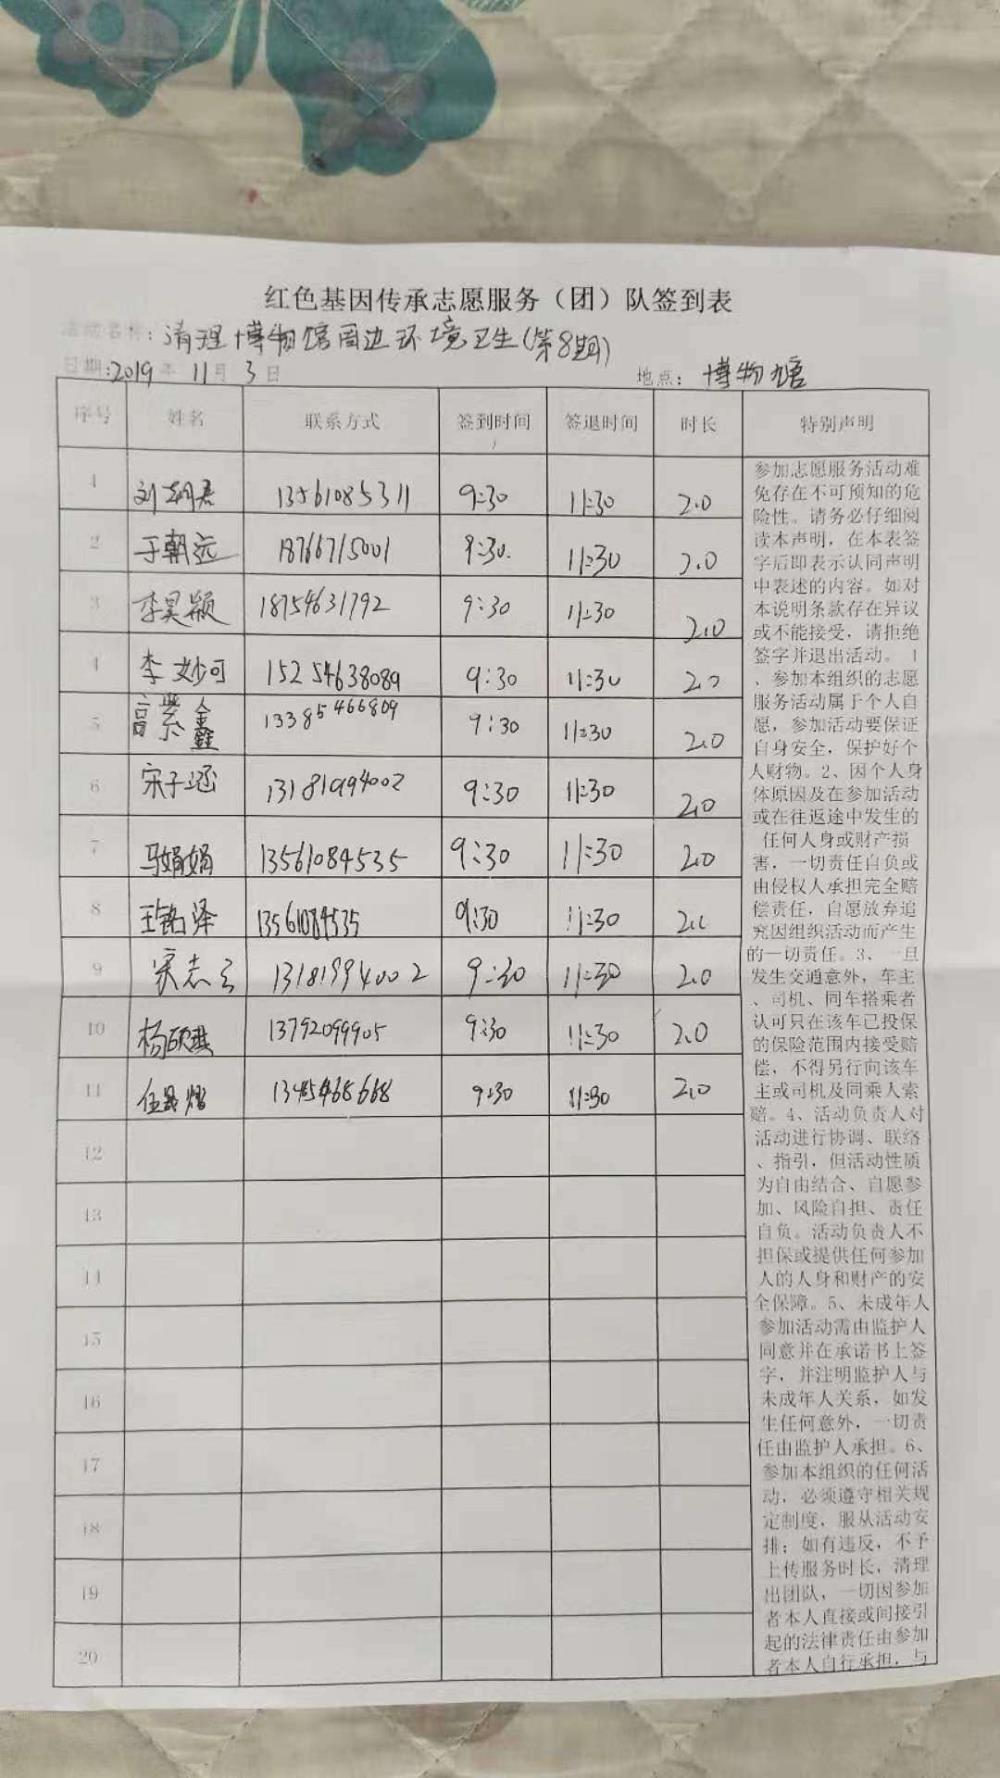 红色基因传承志愿服务（团）队签到表
活动名称：清理博物馆周边环境卫生(第8期)
日期:2019年11月3日 地点：博物馆
序号 姓名 联系方式 签到时间 签退时间 时长 特别声明
1 刘朝君 13561085311 9:30 11:30 2.0
2 于朝远 18766715001 9:30. 11:30 2.0
3 李昊颖 18754631792 9:30 11:30 2.0
4 李妙可 15254638089 9:30 11:30 2.0
5 高紫鑫 13385466809 9:30 11:30 2.0
6 宋子涵 13181994002 9:30 11:30 2.0
7 马娟娟 13561084535 9:30 11:30 2.0
8 王铭泽 13561084535 9:30 11:30 2.0
9 宋志云 13181994002 9:30 11:30 2.0
10 杨硕祺 13792099905 9:30 11:30 2.0
11 9:30 11:30 2.0
12
13
14
15
16
17
18
19
20
参加志愿服务活动难
免存在不可预知的危
险性。请务必仔细阅
读本声明，在本表签
字后即表示认同声明
中表述的内容。如对
本说明条款存在异议
或不能接受，请拒绝
签字并退出活动。1
、参加本组织的志愿
服务活动属于个人自
愿，参加活动要保证
自身安全，保护好个
人财物。2、因个人身
体原因及在参加活动
或在往返途中发生的
任何人身或财产损
害，一切责任自负或
由侵权人承担完全赔
偿责任，自愿放弃追
究因组织活动而产生
的一切责任。3、一旦
发生交通意外，车主
、司机、同车搭乘者
认可只在该车已投保
的保险范围内接受赔
偿，不得另行向该车
主或司机及同乘人索
赔。4、活动负责人对
活动进行协调、联络
、指引，但活动性质
为自由结合、自愿参
加、风险自担、责任
自负。活动负责人不
担保或提供任何参加
人的人身和财产的安
全保障。5、未成年人
参加活动需由监护人
同意并在承诺书上签
字，并注明监护人与
未成年人关系，如发
生任何意外，一切责
任由监护人承担。6、
参加本组织的任何活
动，必须遵守相关规
定制度，服从活动安
排；如有违反，不予
上传服务时长，清理
出团队，一切因参加
者本人直接或间接引
起的法律责任由参加
者本人自行承担，与